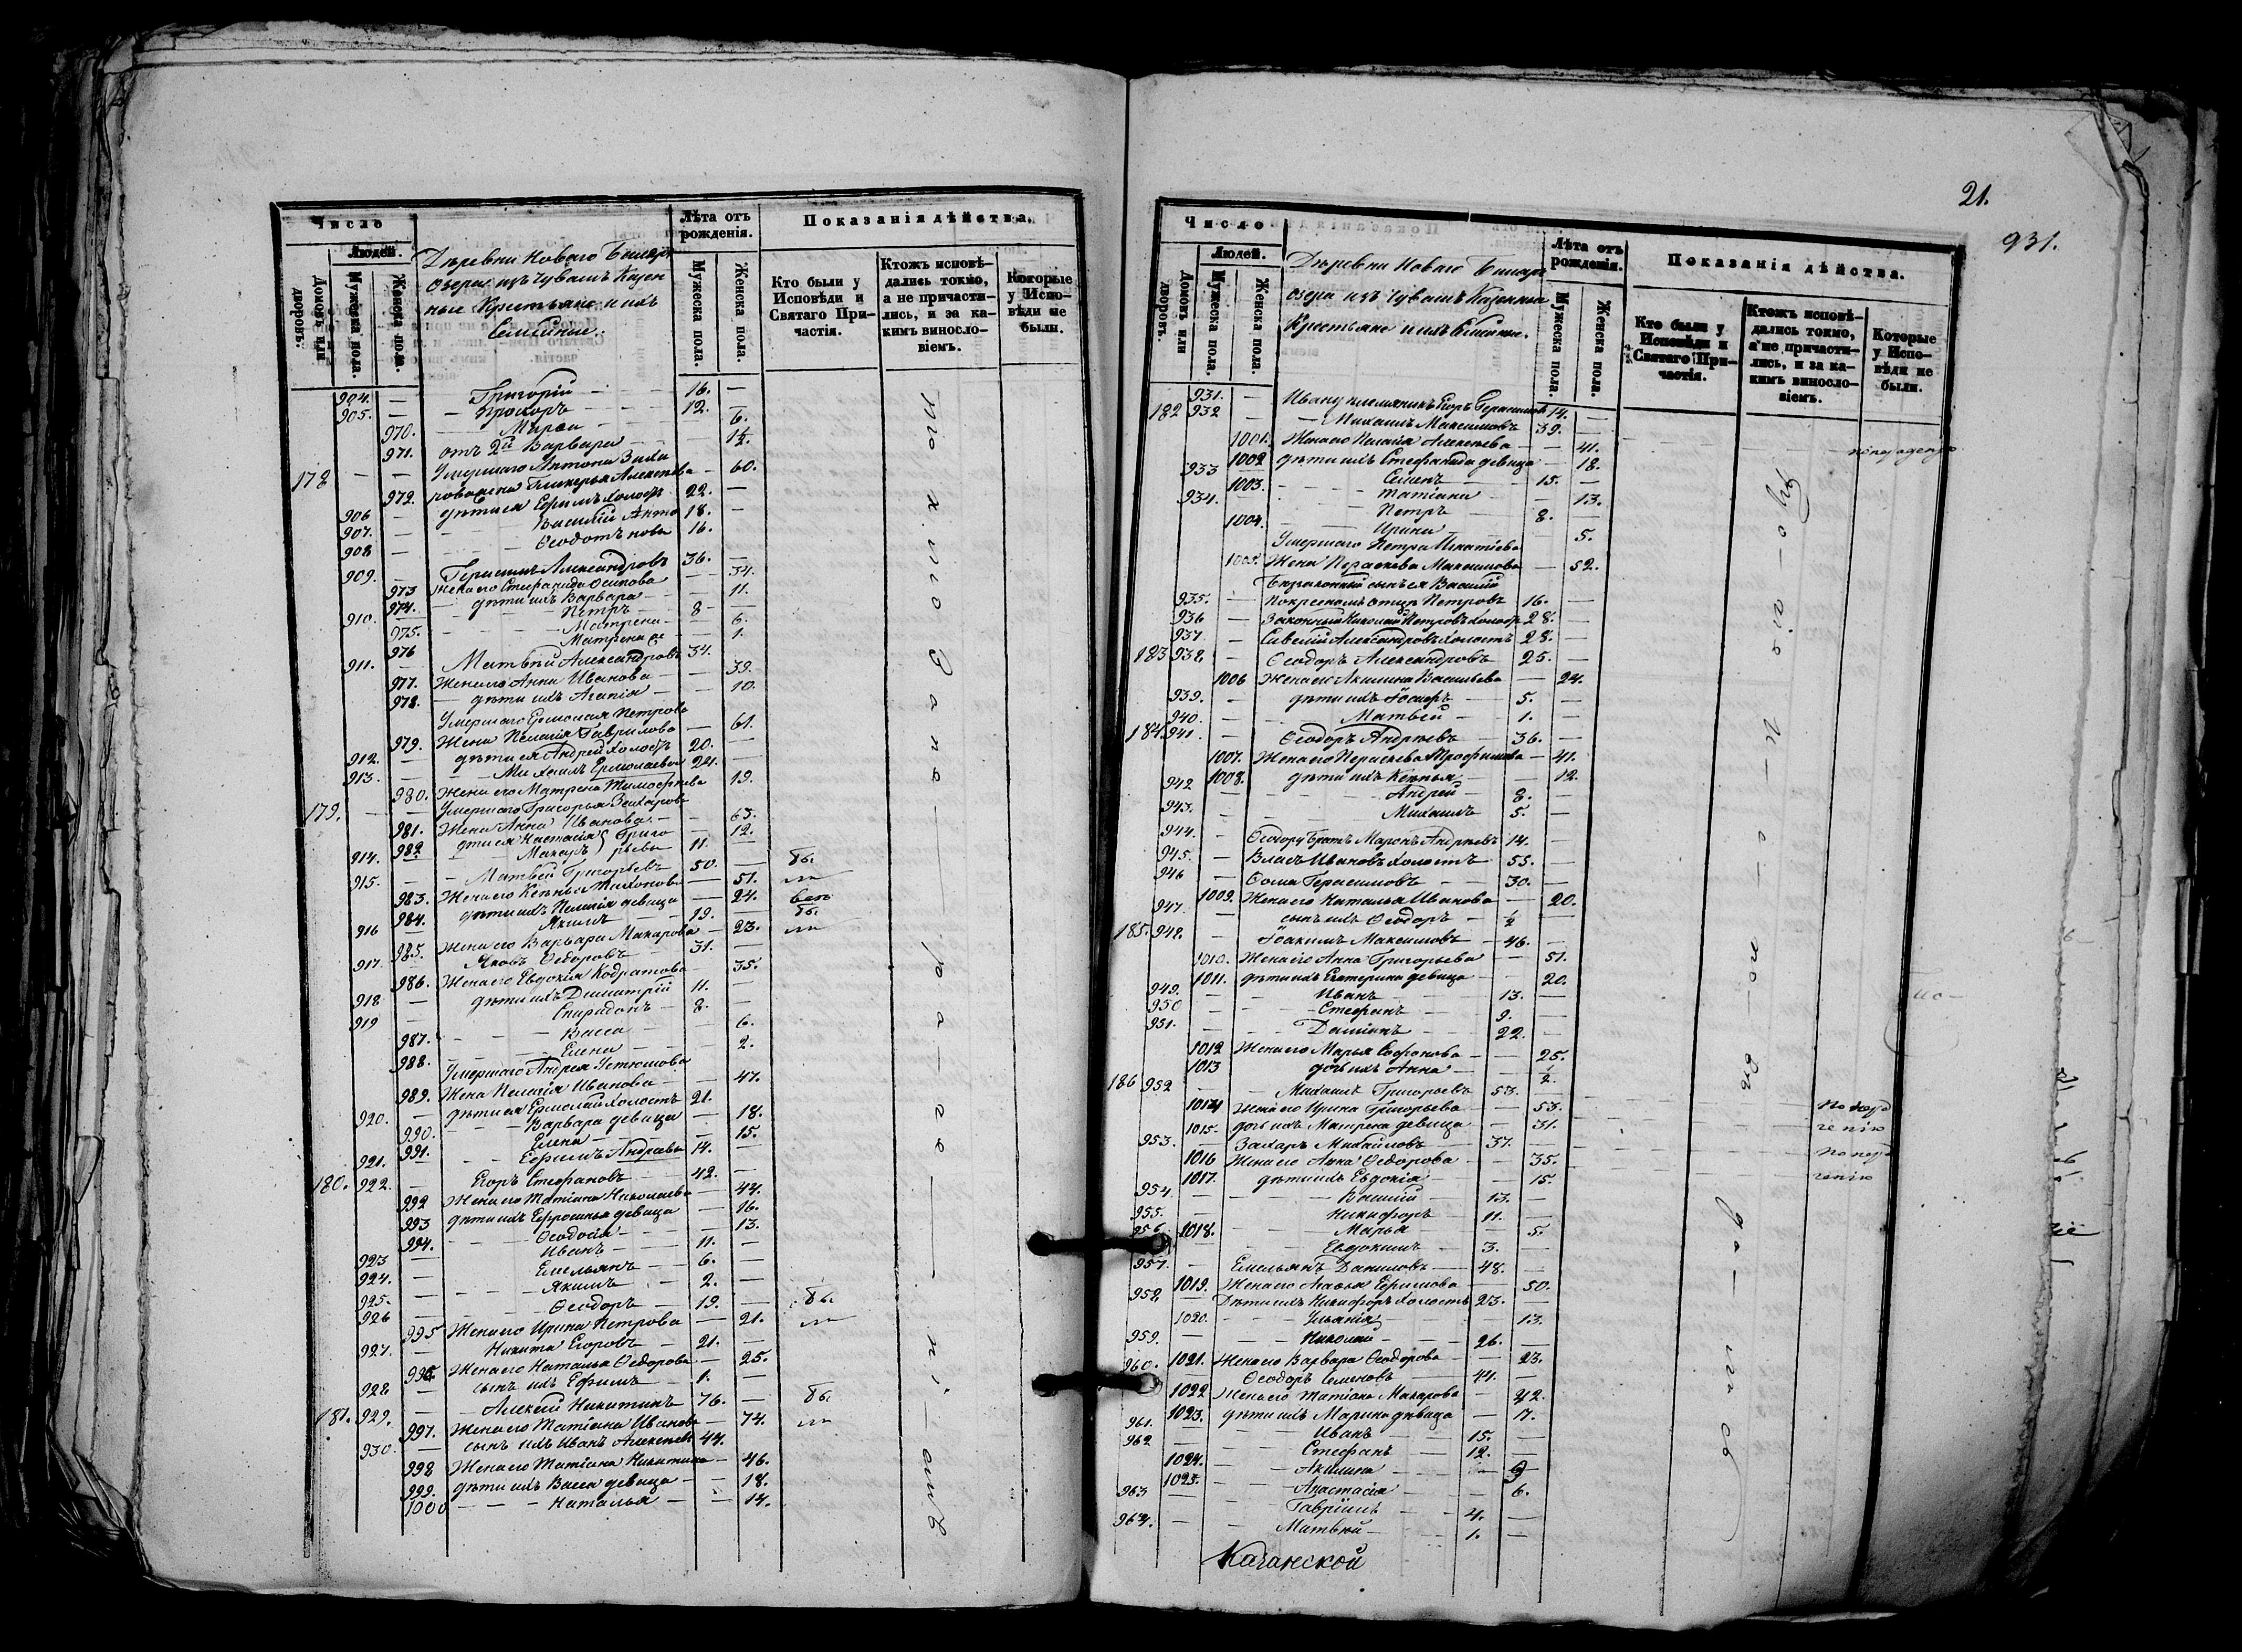 Число
Людей.
Домовъ или дворовъ.
Мужеска пола.
Женска пола.
Деревни Новаго Биляр
озера изъ Чувашъ Казен
ные Крестьяне и ихъ
Семейные.
Лѣта отъ рожденія.
Мужеска пола.
Женска пола.
Показанія дѣйства.
Кто были у Исповѣди и Святаго Причастія.
Ктожъ исповѣдались токмо, а не причастились, и за какимъ винословіемъ.
Которые у Исповѣди не были.
904. — Григорій — 16. —
905. — Прохоръ — 12. —
970. — Марѳа — 6.
971. отъ 2й Варвара — 1½.
178 — — Умершаго Антона Заха
972. рова жена Гликерья Алексѣева — 60.
906 — дѣти ея Ефимъ холостъ 22. —
907. — Василій Анто 18. —
908 — Ѳеодотъ новы 16.
909. — Герасимъ Александровъ 36. —
973 Жена его Стефанида Осипова — 34.
974. — дѣти ихъ Варвара — 11.
910. — Петръ — 8 —
975. — Матрена — 6.
976 Матрена — 1.
911. — Матвѣй Александровъ 34.
977. Жена его Анна Иванова — 39.
978. — дѣти ихъ Агапія — 10.
Умершаго Ермолая Петрова
979. Жена Пелагія Гаврилова — 61.
912. — дѣти ея Андрей холостъ 20. —
913. — Михаилъ Ермолаевы 24. —
980. Жена его Матрена Тимоѳеева 19.
179. — — Умершаго Григорья Захарова
981. Жена Анна Иванова — 63.
982 дѣти ея Настасія Григо — 12.
914. — Макаръ рьевы 11. —
915. — Матвей Григорьевъ 50. — бы
983. Жена его Ксенья Тихонова — 51. ли
984. дѣти ихъ Пелагія девица — 24. всѣ
916 — Якимъ — 19. — бы
985. Жена его Варвара Макарова — 23. ли
917. — Яковъ Ѳедоровъ — 31. —
986. Жена его Евдокія Кодратова — 35.
918 — дѣти ихъ Димитрій 11. —
919 — Спиридонъ — 8. —
987. — Васса — 6.
988. — Елена — 2.
Умершаго Андрея Устюмова
989. Жена Пелагія Иванова — 47.
920. — дѣти ея Ермолай холостъ 21.
990. — Варвара девица — 18.
991. Елена — 15.
921. — Ефимъ Андреевы 14. —
180. 922. — Егоръ Стефановъ — 42. —
992 Жена его Татіана Николаева — 44.
993 дѣти ихъ Ефросинья девица — 16.
994. — Ѳеодосія — 13.
923 — Иванъ — 11. —
924. — Емельянъ — 6. —
925. — Якимъ — 2. —
926 — Ѳеодоръ — 19. — бы
995 Жена его Ирина Петрова — 21. ли
927. — Никита Егоровъ — 21. —
996. Жена его Наталья Ѳедорова — 25.
928 — сынъ ихъ Ефимъ — 1. —
181. 929. — Алексѣй Никитинъ — 76. — бы
997. Жена его Татіана Иванова — 74. ли
930. — сынъ ихъ Иванъ Алексѣевъ 44.
998 Жена его Татіана Никитина — 46.
999. дѣти ихъ Васса девица — 18.
1000 — Наталья — 14.
21.
931.
Число
Людей.
Домовъ или дворовъ.
Мужеска пола.
Женска пола.
Деревни Новаго Биляръ
озера изъ Чувашъ Казенные
Крестьяне и ихъ Семейные.
Лѣта отъ рожденія.
Мужеска пола.
Женска пола.
Показанія дѣйства.
Кто были у Исповѣди и Святаго Причастія.
Ктожъ исповѣдались токмо, а не причастились, и за какимъ винословіемъ.
Которые у Исповѣди не были.
931. — Ивану племянникъ Егоръ Герасимовъ 14. —
182 932 — Михаилъ Максимовъ 39. —
1001. Жена его Пелагія Алексѣева — 41.
1002 дѣти ихъ Стефанида девица — 18.
933 — Семенъ — 15. —
1003. — Татіана — 13.
934. — Петръ — 8. —
1004. — Ирина — 5.
Умершаго Петра Игнатіева
1005. Жена Параскева Максимова — 52.
Беззаконный сынъ ея Василій
935. — по крестномъ отцѣ Петровъ 16. —
936 — Законный Николай Петровъ холостъ 28. —
937 — Савелій Александровъ холостъ 28. —
183 938 — Ѳеодоръ Александровъ 25. —
1006 Жена его Акилина Васильева — 24.
939. — дѣти ихъ Іосифъ — 5. —
940. — Матвей — 1. —
184 941 — Ѳеодоръ Андреевъ — 36. —
1007. Жена его Параскева Трофимова — 41.
1008. дѣти ихъ Ксенья — 12.
942 — Андрей — 8. —
943. — Михаилъ 5. —
944. — Ѳеодору братъ Миронъ Андреевъ 14. —
945. — Власъ Ивановъ холостъ 55. —
946 — Ѳома Герасимовъ — 30. —
1009. Жена его Наталья Иванова — 20.
947. — сынъ ихъ Ѳеодоръ — ½ —
185. 948. — Іоакимъ Максимовъ — 46. —
1010. Жена его Анна Григорьева — 51.
1011. дѣти ихъ Екатерина девица — 20.
949. — Иванъ — 13. —
950 — Стефанъ — 9. —
951. — Даміанъ — 22. —
1012 Жена его Марья Софонова — 25.
1013 дочь ихъ Анна — ½.
186 952 — Михаилъ Григорьевъ 53. —
1014 Жена его Ирина Григорьева — 53.
1015. дочь ихъ Матрена девица — 31.
953. — Захаръ Михайловъ — 37. —
1016 Жена его Анна Ѳедорова — 35.
1017. дѣти ихъ Евдокія — 15.
954. — Василій — 13. —
955. — Никифоръ — 11. —
1018. Марья — 5.
956. — Евдокимъ — 3. —
957. — Емельянъ Даниловъ — 48. —
1019. Жена его Агаѳья Ефимова — 50.
958 — Дѣти ихъ Никифоръ холостъ 23. —
1020. — Ульянія — 13.
959. — Николай — 26. —
1021. Жена его Варвара Ѳеодорова — 23.
960. Ѳеодоръ Семеновъ — 44. —
1022 Жена его Татіана Макарова — 42.
1023. дѣти ихъ Марина девица — 17.
961. — Иванъ — 15. —
962 — Стефанъ — 12. —
1024. — Акилина — 9
1025. — Анастасія — 6.
963 — Гавріилъ — 4. —
964. — Матвей — 1. —
Качанской